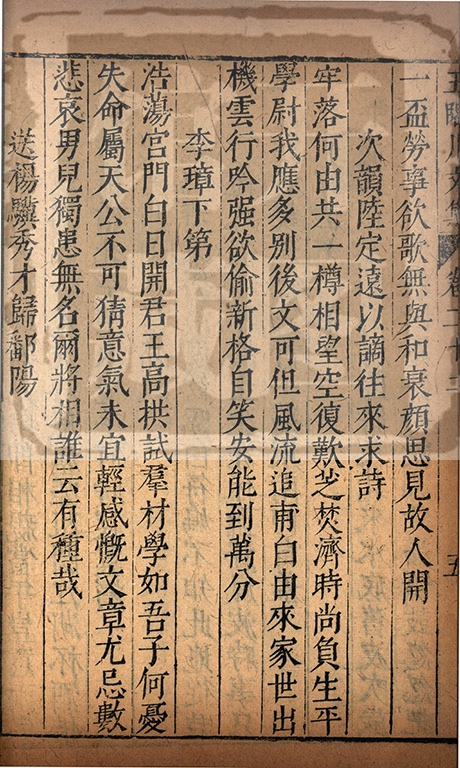 卷二十 五
一盃勞事欲歌無與和衰顏思見故人開
次韻陸定遠以謫往來求詩
牢落何由共一樽相望空復歎芝焚濟時尚負生平
學尉我應多别後文可但風流追甫白由來家世出
機雲行吟强欲偷新格自笑安能到萬分
李璋下第
浩蕩宮門白日開君王高拱試羣材學如吾子何憂
失命屬天公不可猜意氣未宜輕感慨文章尤忌數
悲哀男兒獨患無名爾將相誰云有種哉
送楊驥秀才歸鄱陽